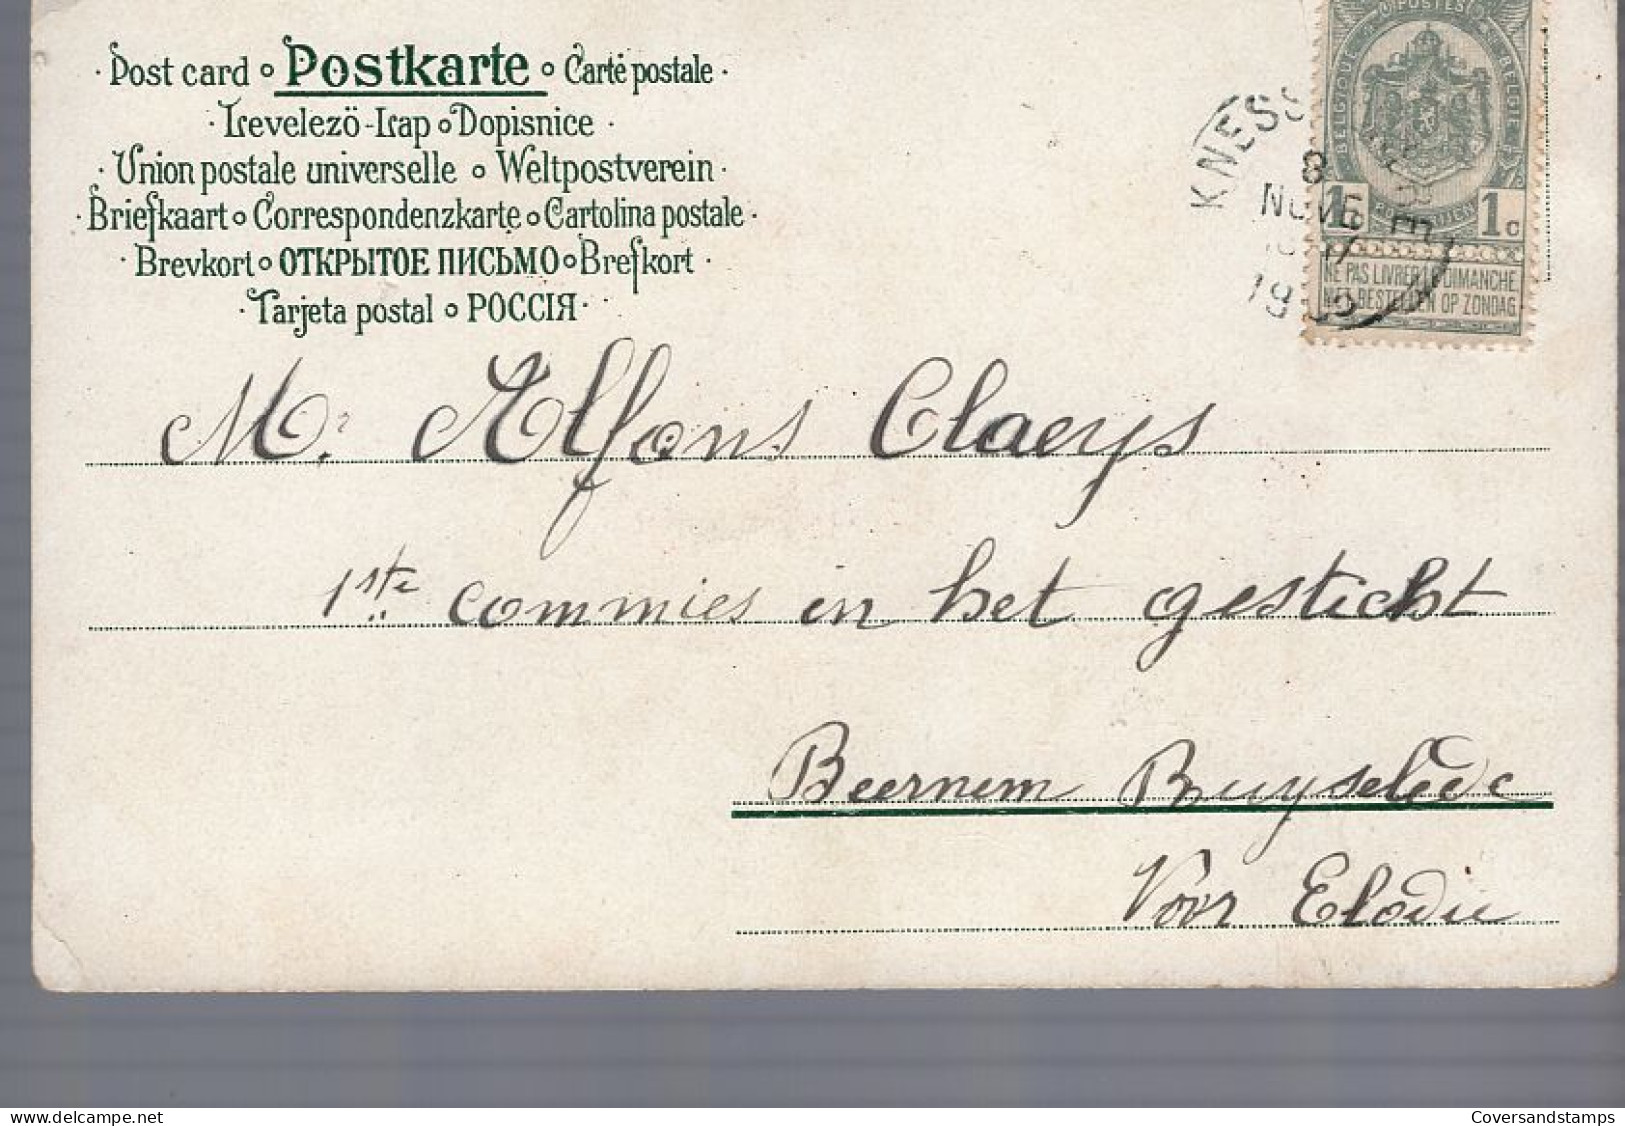 · Post card ∘ Postkarte ∘ Carte postale ·
· Levelezö-Lap ∘ Dopisnice ·
· Union postale universelle ∘ Weltpostverein ·
· Briefkaart ∘ Correspondenzkarte ∘ Cartolina postale ·
· Brevkort ∘ ОТКРЫТОЕ ПИСЬМО ∘ Brefkort ·
· Tarjeta postal ∘ РОССІЯ ·
POSTES
BELGIQUE BELGIE
KNESS
8
NOVE
19
1c 1c
NE PAS LIVRER LE DIMANCHE
NIET BESTELLEN OP ZONDAG
Mr. Alfons Claeys
1ste commies in het gesticht
Beernem Ruyselede
Voor Elodie
delcampe.net
Coversandstamps